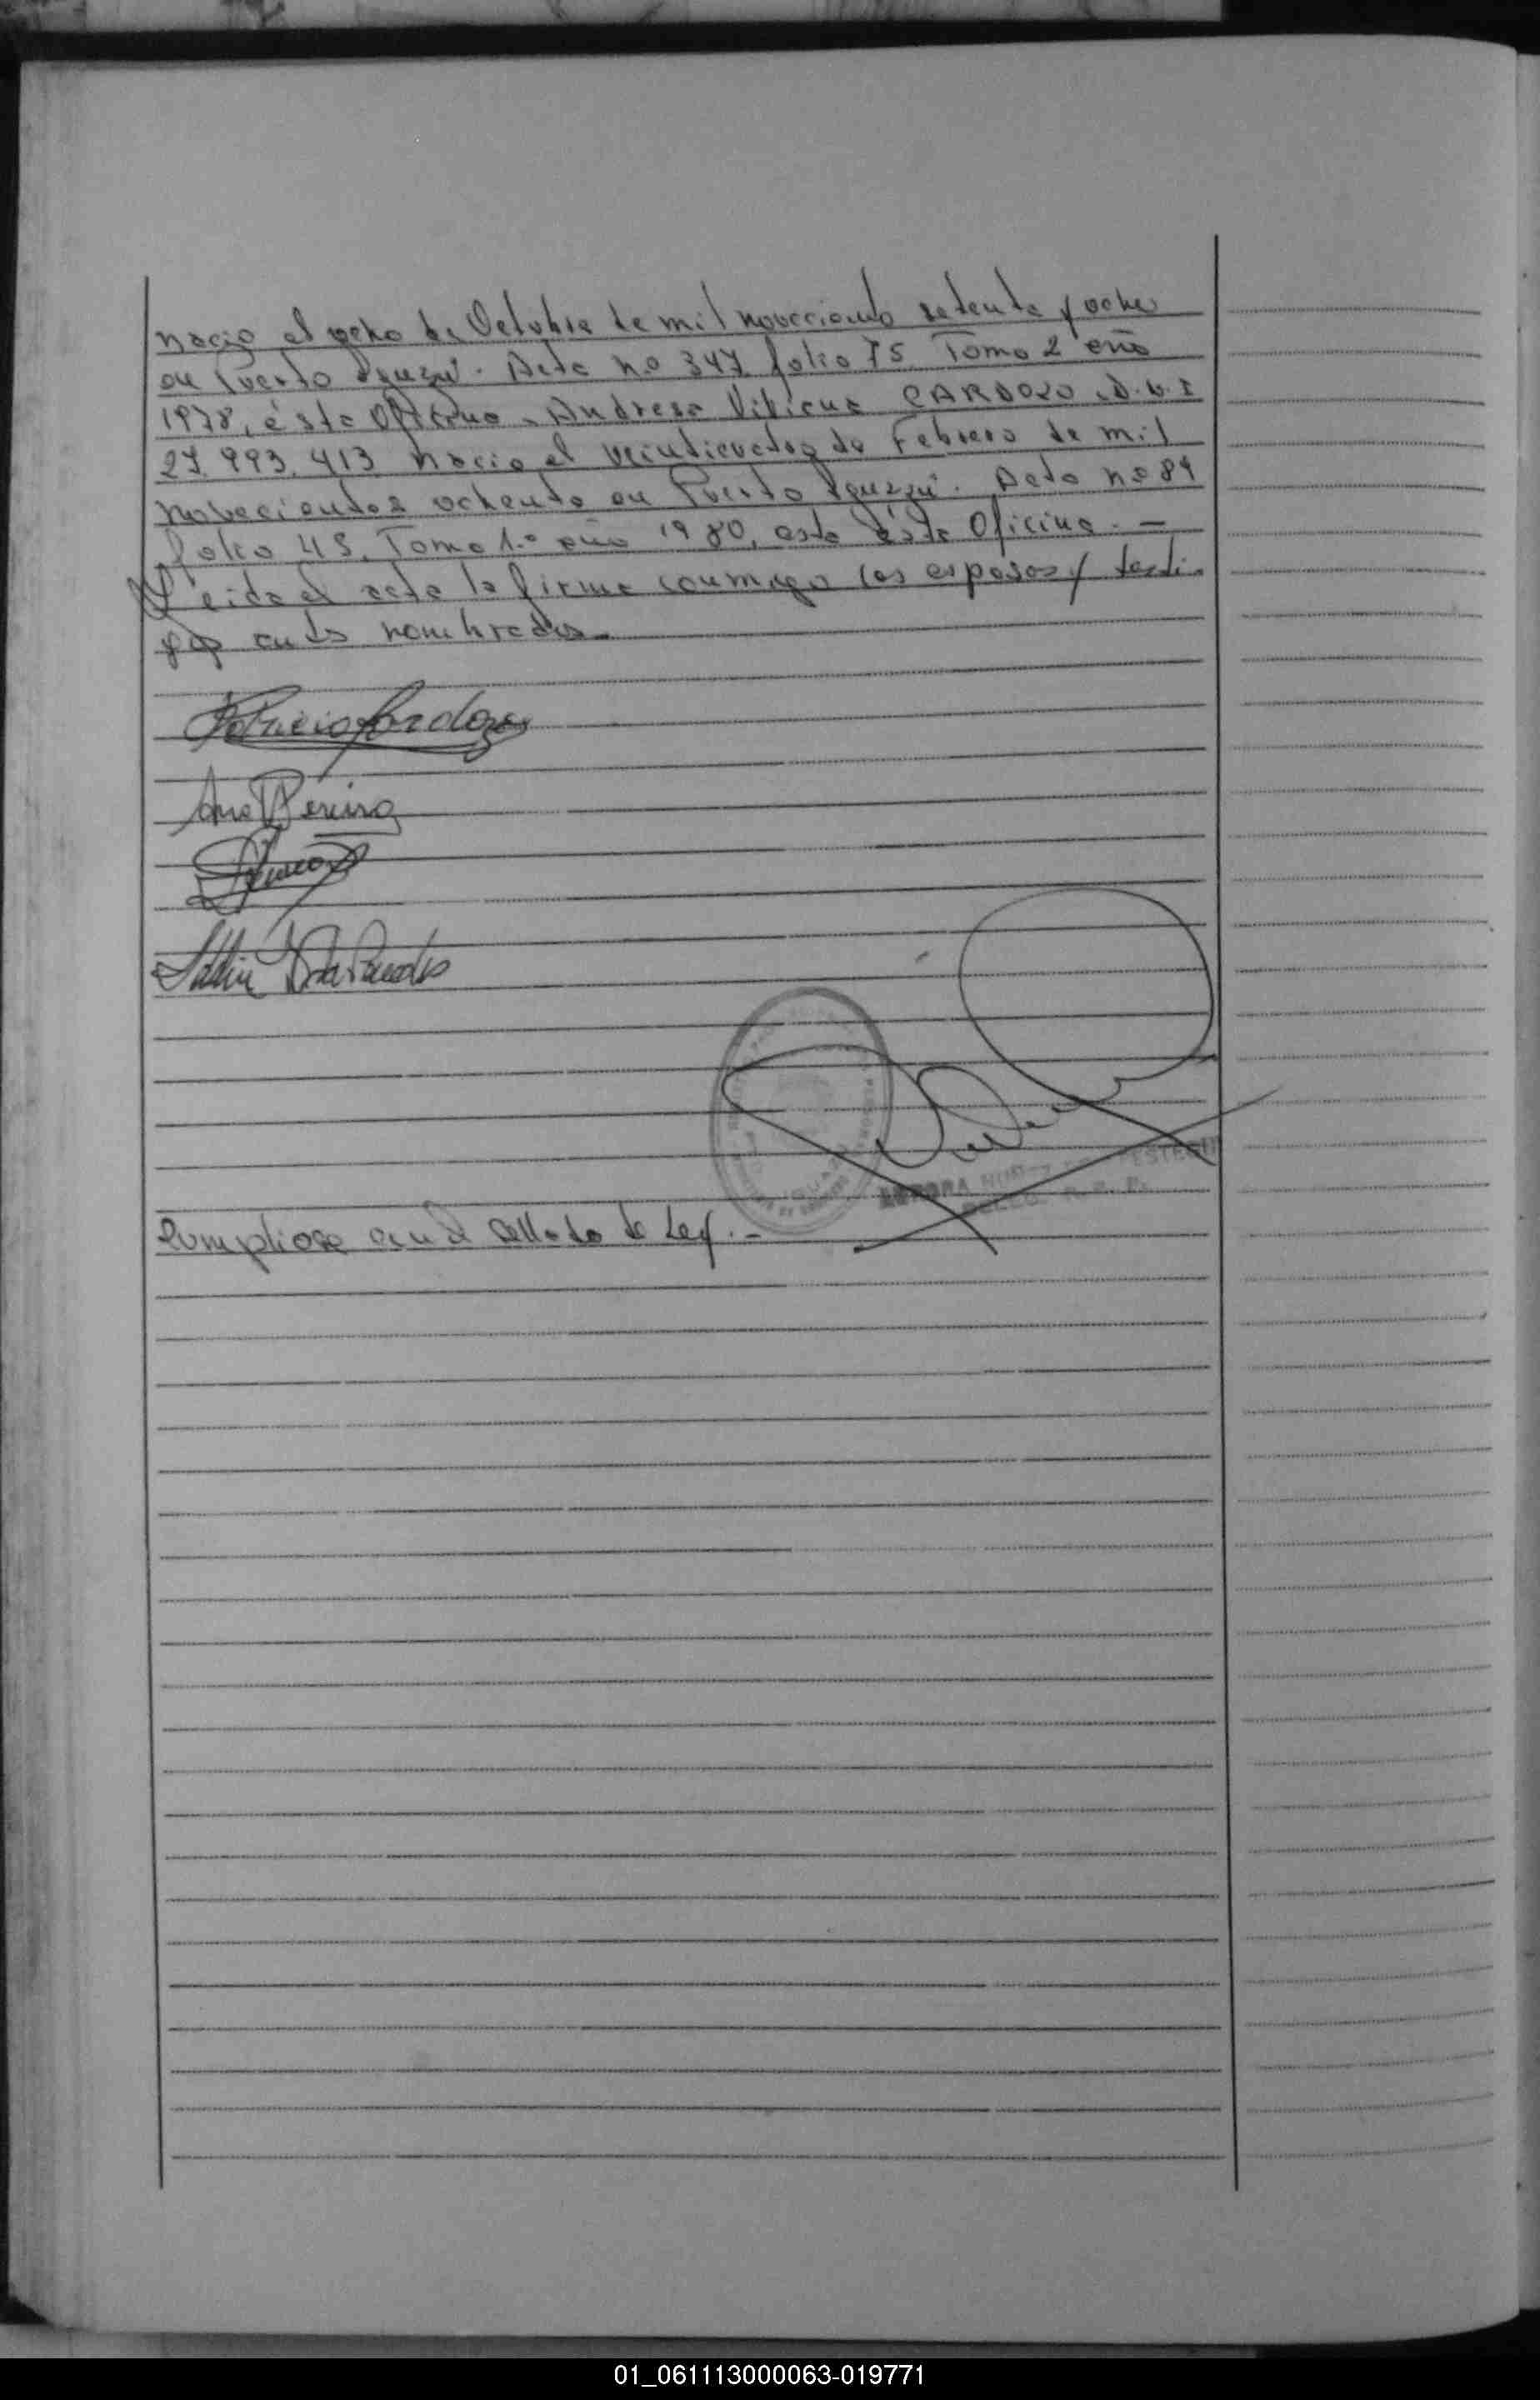 nacio el ocho de Octubre de mil novecciento setenta y ocho
en Puerto Iguazú. Acta no 347 folio 75 Tomo 2 año
1978, ésta Oficina. Andresa Viviana CARDOZO, D.N.I
27.993.413 nacio el veinticuatro de Febrero de mil
novecientos ochenta en Puerto Iguazú. Acta no 89
folio 45. Tomo 1.º año 1980, ésta Oficina. —
Leida el acta la firma conmigo los esposos y testi-
gos en ts nombrados.
Patricio Cardozo
Ana Pereira
AURORA NUÑEZ
DELEG. R. P. P.
Cumpliose con el sellado de Ley. -
01_061113000063-019771